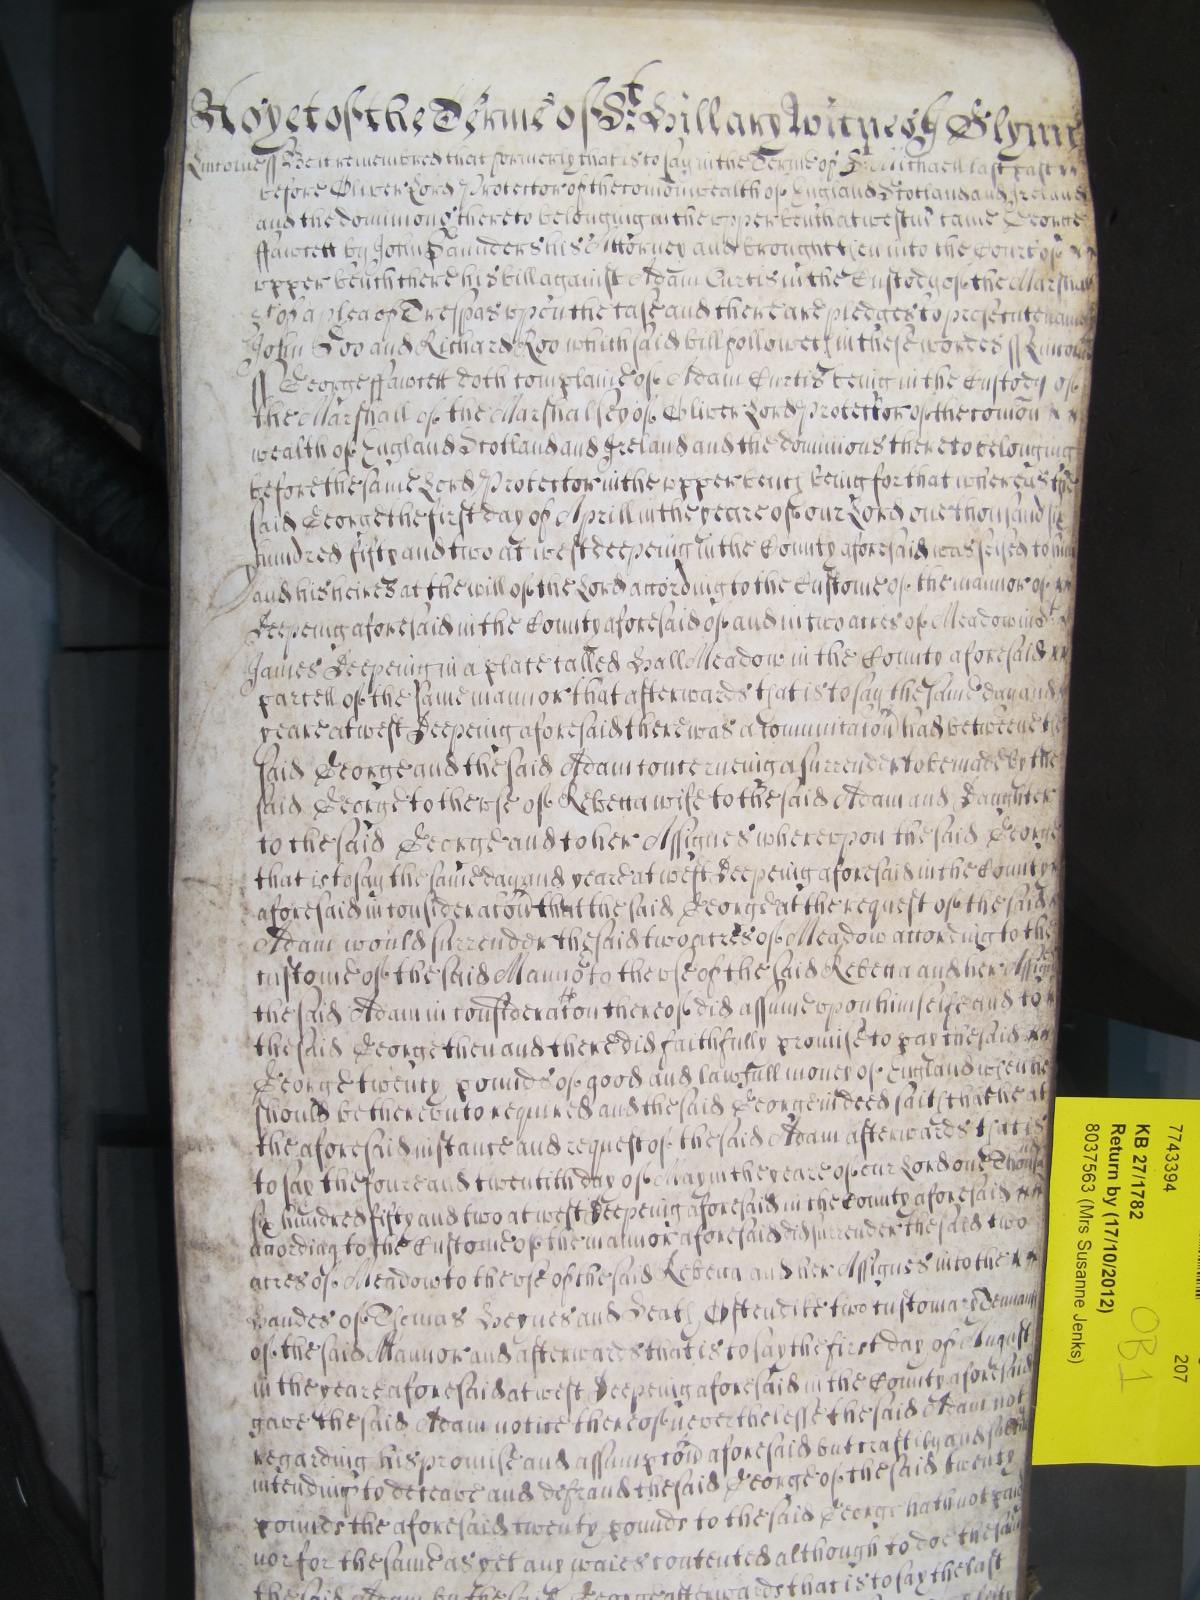 As yet of the Terme of St Hillary Witnesse Glynne
Lincolne ss Be it remembred that formerly that is to say in the Terme of St Michaell last past
before Oliver Lord Protector of the comonwealth of England Scotland and Ireland
and the dominions thereto belonging in the upper bench at westmr came George
ffawcett by John Saunders his Attorney and brought then into the Court of
upper bench there his bill against Adam Curtis in the Custody of the Marshall
&c of a plea of Trespas upon the case and there are pledges to prosecute namely
John Doo and Richard Roo which said bill followeth in these wordes ss Lincolne
ss George ffawcett doth complaine of Adam Curtis being in the Custody of
the Marshall of the Marshalsey of Oliver Lord Protector of the comon
wealth of England Scotland and Ireland and the dominions thereto belonging
before the same Lord Protector in the upper bench being for that whereas the
said George the first day of Aprill in the yeare of our Lord one thousand six
hundred fifty and two at west deepeing in the County aforesaid was seised to him
and his heires at the will of the Lord according to the Custome of the mannor of
Deepeing aforesaid in the County aforesaid of and in two acres of Meadow in
James Deepeing in a place called Hall Meadow in the County aforesaid
parcell of the same mannor that afterwards that is to say the same day and
yeare at west Deepeing aforesaid there was a comunicacon had betweene the
said George and the said Adam concerneing a surrender to be made by the
said George to the use of Rebecca wife to the said Adam and Daughter
to the said George and to her Assignes whereupon the said George
that is to say the same day and yeare at west Deepeing aforesaid in the County
aforesaid in consideracon that the said George at the request of the said
Adam would surrender the said two acres of Meadow according to the
custome of the said Mannor to the use of the said Rebecca and her Assignes
the said Adam in consideracon thereof did assume upon himselfe and to
the said George then and there did faithfully promise to pay the said
George twenty pounds of good and lawfull money of England when he
should be thereunto required and the said George indeed saith that he at
the aforesaid instance and request of the said Adam afterwards that is
to say the foure and twentith day of May in the yeare of our Lord one Thousand
six hundred fifty and two at west Deepeing aforesaid in the County aforesaid
acording to the Custome of the mannor aforesaid did surrender the said two
acres of Meadow to the use of the said Rebecca and her Assignes into the
handes of Thomas Heynes and Heath two customary Tennants
of the said Mannor and afterwards that is to say the first day of August
in the yeare aforesaid at west Deepeing aforesaid in the County aforesaid
gave the said Adam notice thereof neverthelesse the said Adam not
regarding his promise and assumpcon aforesaid but craftily and
intending to deceave and defraud the said George of the said twenty
pounds the aforesaid twenty pounds to the said George hath not paid
nor for the same as yet any waies contented although to doe the same
the said Adam by the said George afterwards that is to say the last
7743394
KB 27/1782
Return by (17/10/2012)
8037563 (Mrs Susanne Jenks)
207
OB1